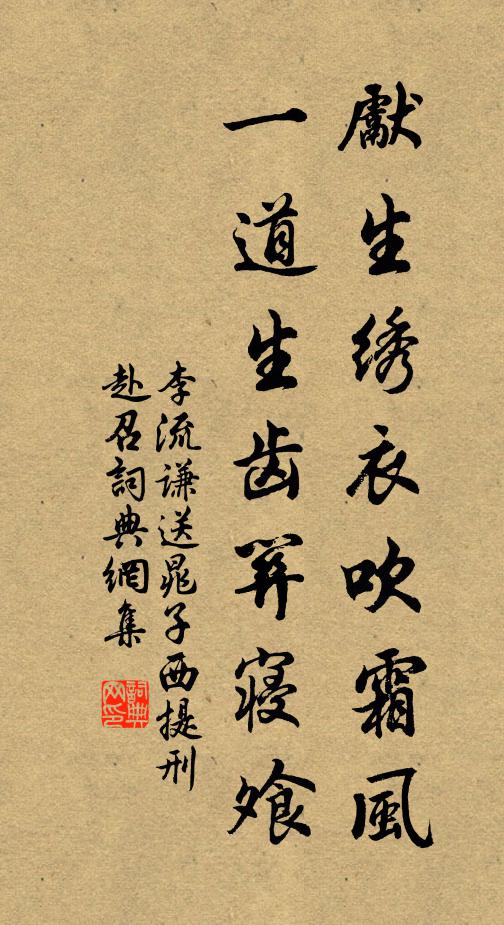 獻生绣衣吹霜風
一道生齿寝飧
李流谦送晁子西提刑
赴召詞典網集
詞典网印